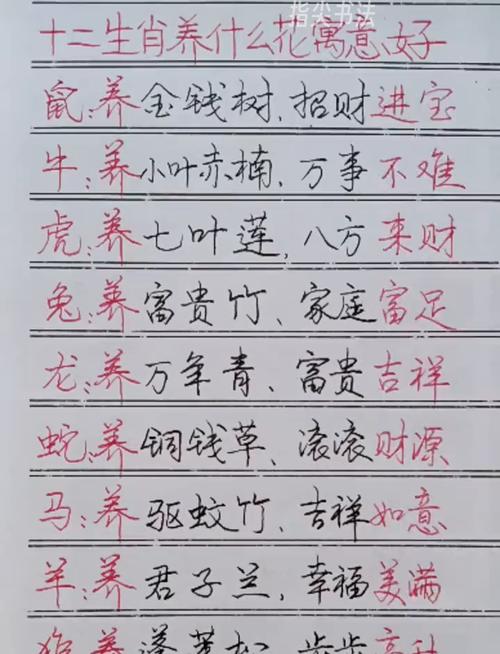 指尖书法
十二生肖养什么花寓意好
鼠:养金钱树、招财进宝
牛:养小叶赤楠、万事不难
虎:养七叶莲、八方来财
兔:养富贵竹、家庭富足
龙:养万年青、富贵吉祥
蛇:养铜钱草、滚滚财源
马:养驱蚊竹、吉祥如意
羊:养君子兰、幸福美满
养蓬莱松、步步高升